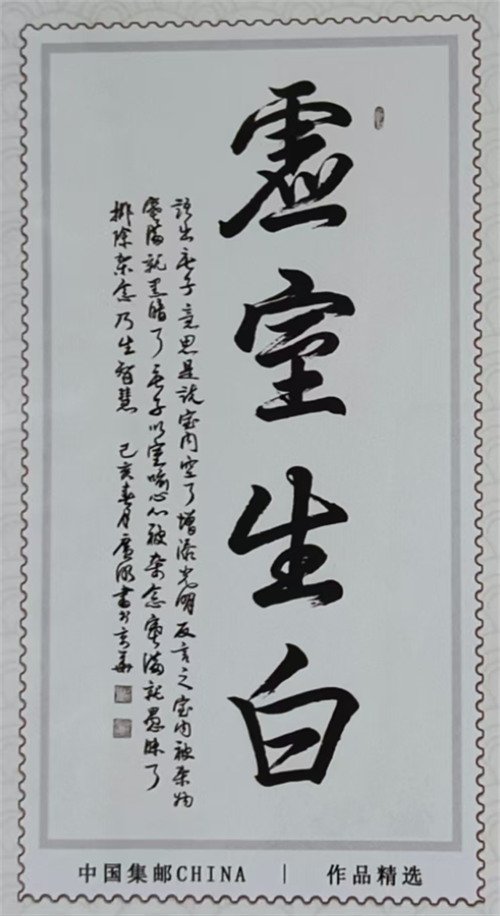 虚室生白
语出庄子意思是说室内空了增添光明反言之室内被杂物
塞满就黑暗了庄子以室喻心心被杂念塞满就愚昧了
排除杂念乃生智慧 己亥春月广波书于京华
中国集邮CHINA | 作品精选